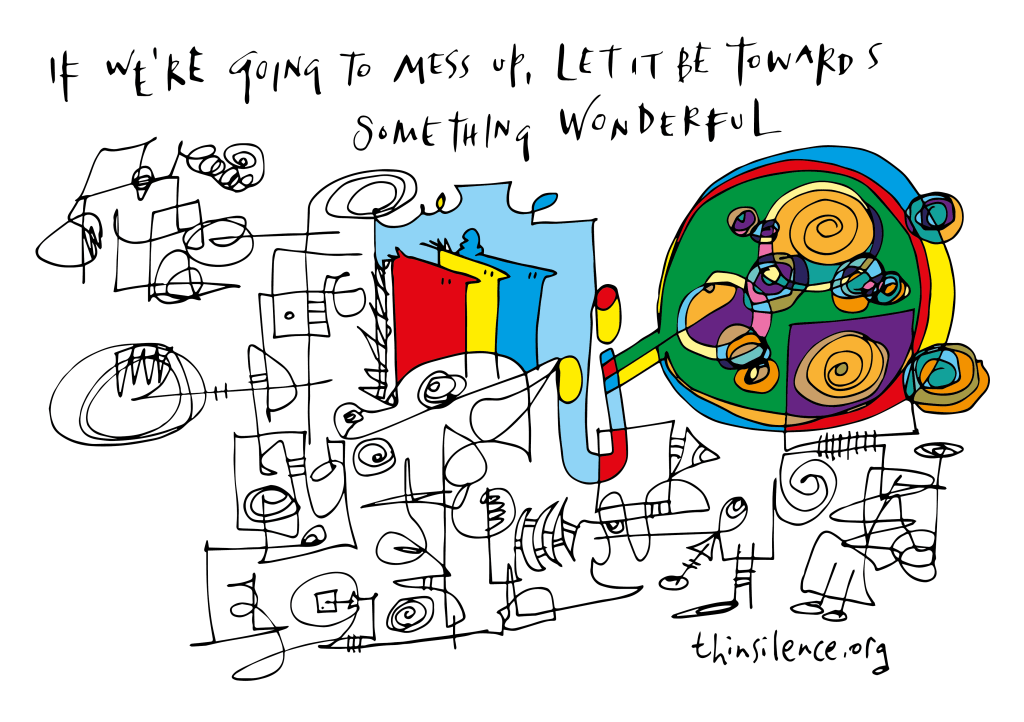 IF WE'RE GOING TO MESS UP, LET IT BE TOWARDS
SOMETHING WONDERFUL
thinsilence.org